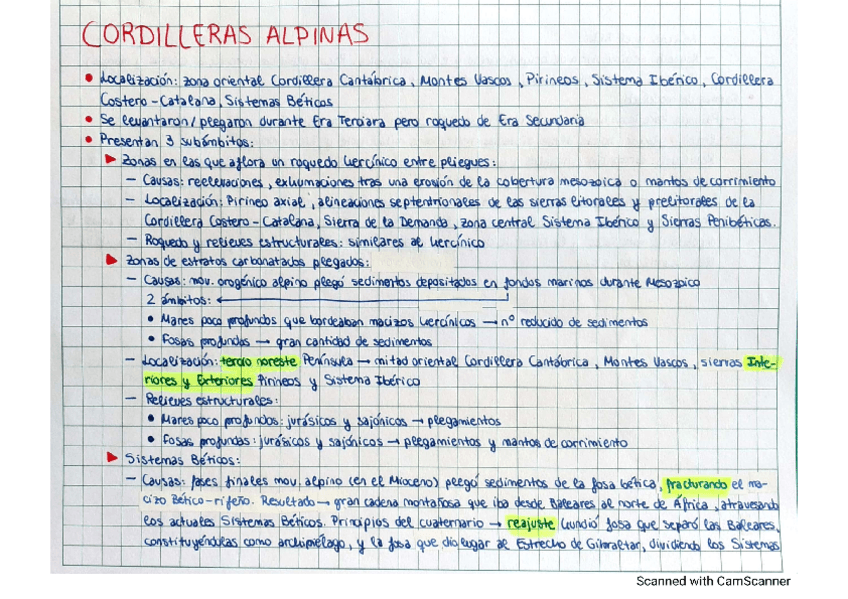 CORDILLERAS ALPINAS
• Localización: zona oriental Cordillera Cantábrica, Montes Vascos, Pirineos, Sistema Ibérico, Cordillera
Costero-Catalana, Sistemas Béticos
• Se levantaron/plegaron durante Era Terciara pero roquedo de Era Secundaria
• Presentan 3 subámbitos:
▶ Zonas en las que aflora un roquedo hercínico entre pliegues:
– Causas: reelevaciones, exhumaciones tras una erosión de la cobertura mesozoica o mantos de corrimiento
– Localización: Pirineo axial, alineaciones septentrionales de las sierras litorales y prelitorales de la
Cordillera Costero-Catalana, Sierra de la Demanda, zona central Sistema Ibérico y Sierras Penibéticas.
– Roquedo y relieves estructurales: similares al hercínico
▶ Zonas de estratos carbonatados plegados:
– Causas: mov. orogénico alpino plegó sedimentos depositados en fondos marinos durante Mesozoico
2 ámbitos: ←
• Mares poco profundos que bordeaban macizos hercínicos → nº reducido de sedimentos
• Fosas profundas → gran cantidad de sedimentos
– Localización: tercio noreste Península → mitad oriental Cordillera Cantábrica, Montes Vascos, sierras Inte-
riores y Exteriores Pirineos y Sistema Ibérico
– Relieves estructurales:
• Mares poco profundos: jurásicos y sajónicos → plegamientos
• Fosas profundas: jurásicos y sajónicos → plegamientos y mantos de corrimiento
▶ Sistemas Béticos:
– Causas: fases finales mov. alpino (en el Mioceno) plegó sedimentos de la fosa bética, fracturando el ma-
cizo Bético-rifeño. Resultado → gran cadena montañosa que iba desde Baleares al norte de África, atravesando
los actuales Sistemas Béticos. Principios del cuaternario → reajuste hundió fosa que separó las Baleares,
constituyéndolas como archipiélago, y la fosa que dio lugar al Estrecho de Gibraltar, dividiendo los Sistemas
Scanned with CamScanner